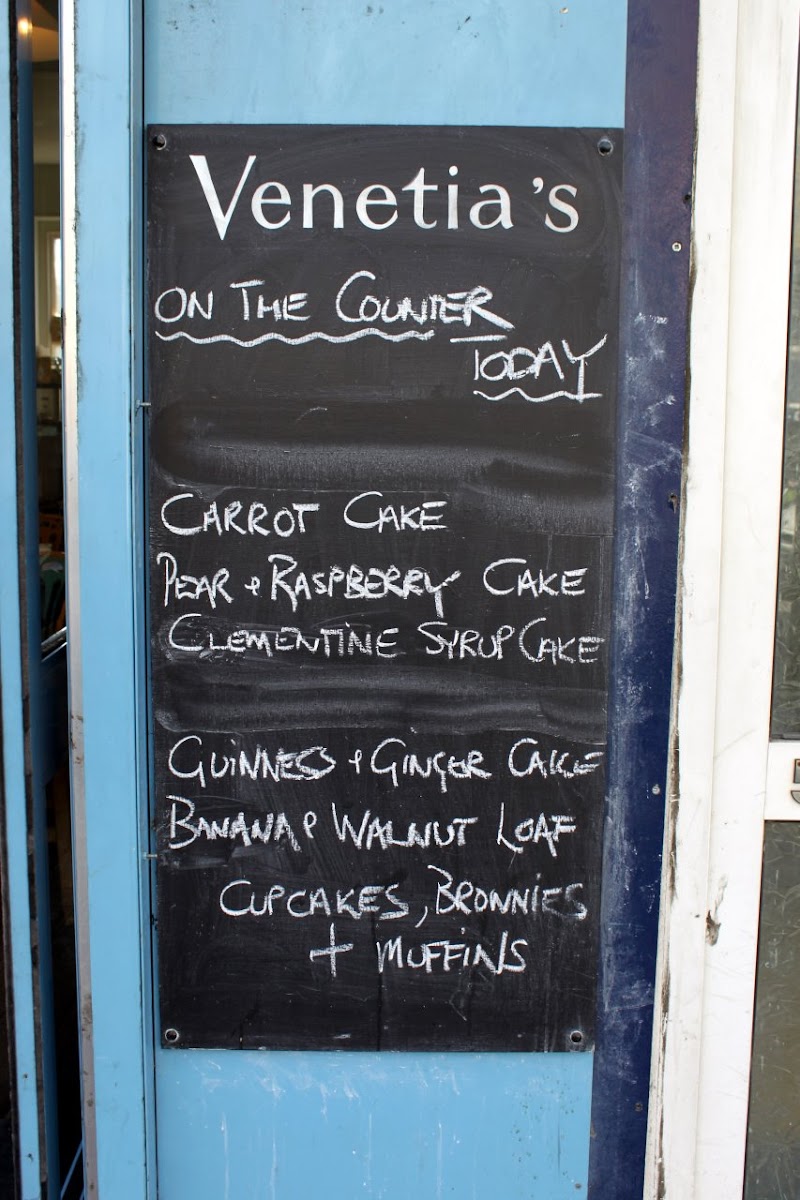 Venetia's
ON THE COUNTER
TODAY
CARROT CAKE
PEAR + RASPBERRY CAKE
CLEMENTINE SYRUP CAKE
GUINNESS + GINGER CAKE
BANANA + WALNUT LOAF
CUPCAKES, BROWNIES
+ MUFFINS